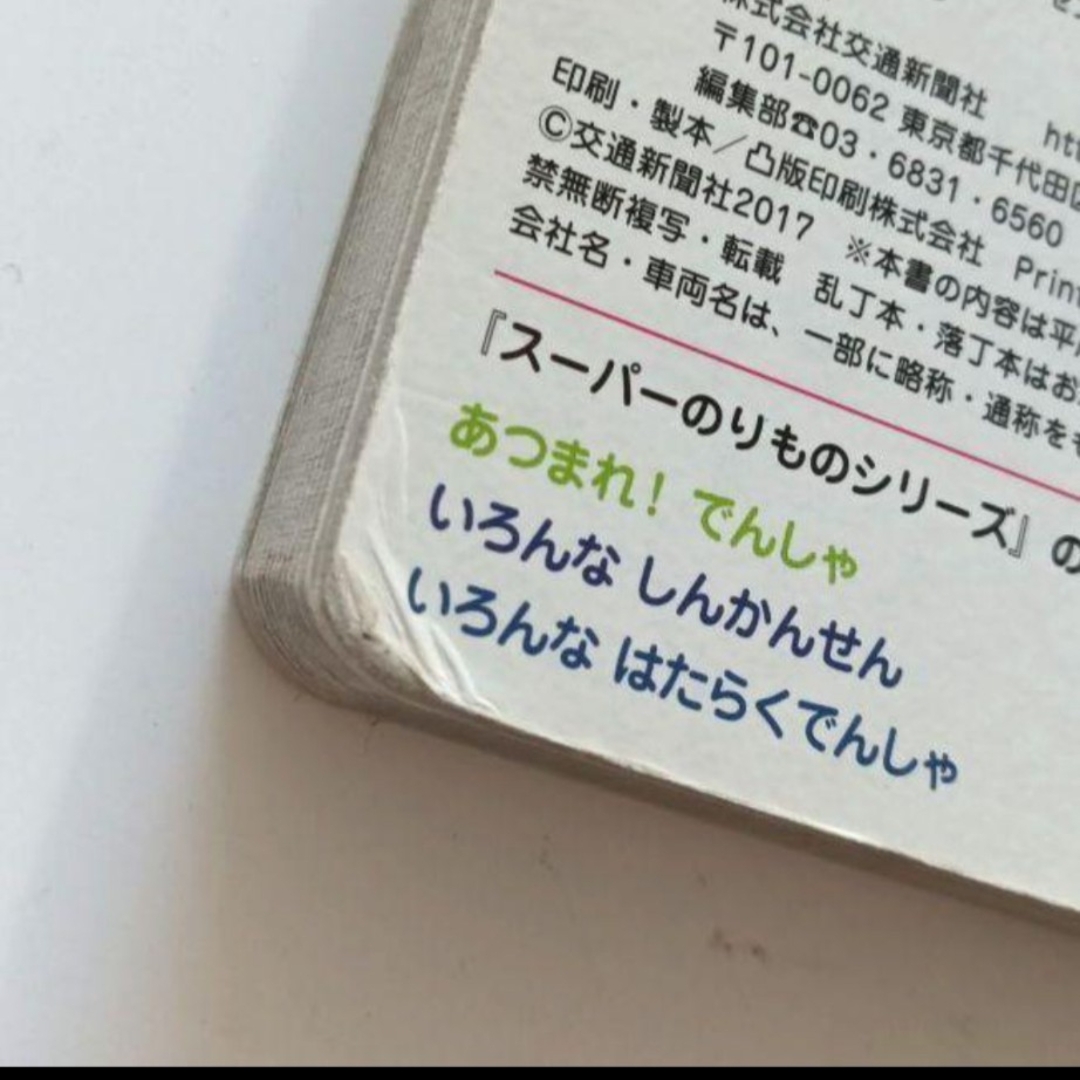 株式会社交通新聞社
〒101-0062 東京都千代田区
編集部☎03・6831・6560
印刷・製本／凸版印刷株式会社 Print
©交通新聞社2017 ※本書の内容は平成
禁無断複写・転載 乱丁本・落丁本はお
会社名・車両名は、一部に略称・通称を
『スーパーのりものシリーズ』の
あつまれ! でんしゃ
いろんな しんかんせん
いろんな はたらくでんしゃ